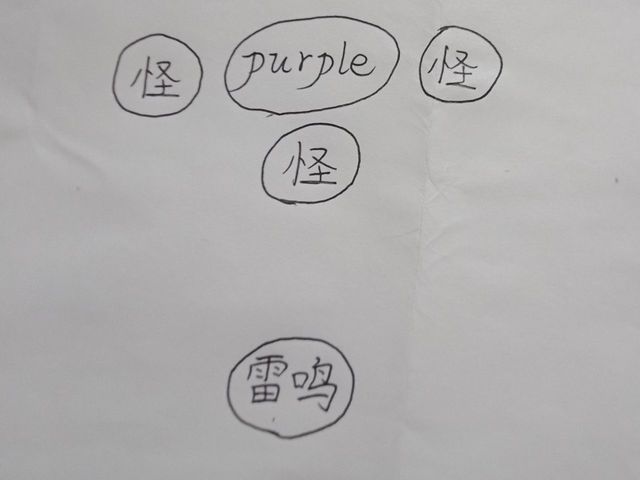 怪 purple 怪
怪
雷鸣